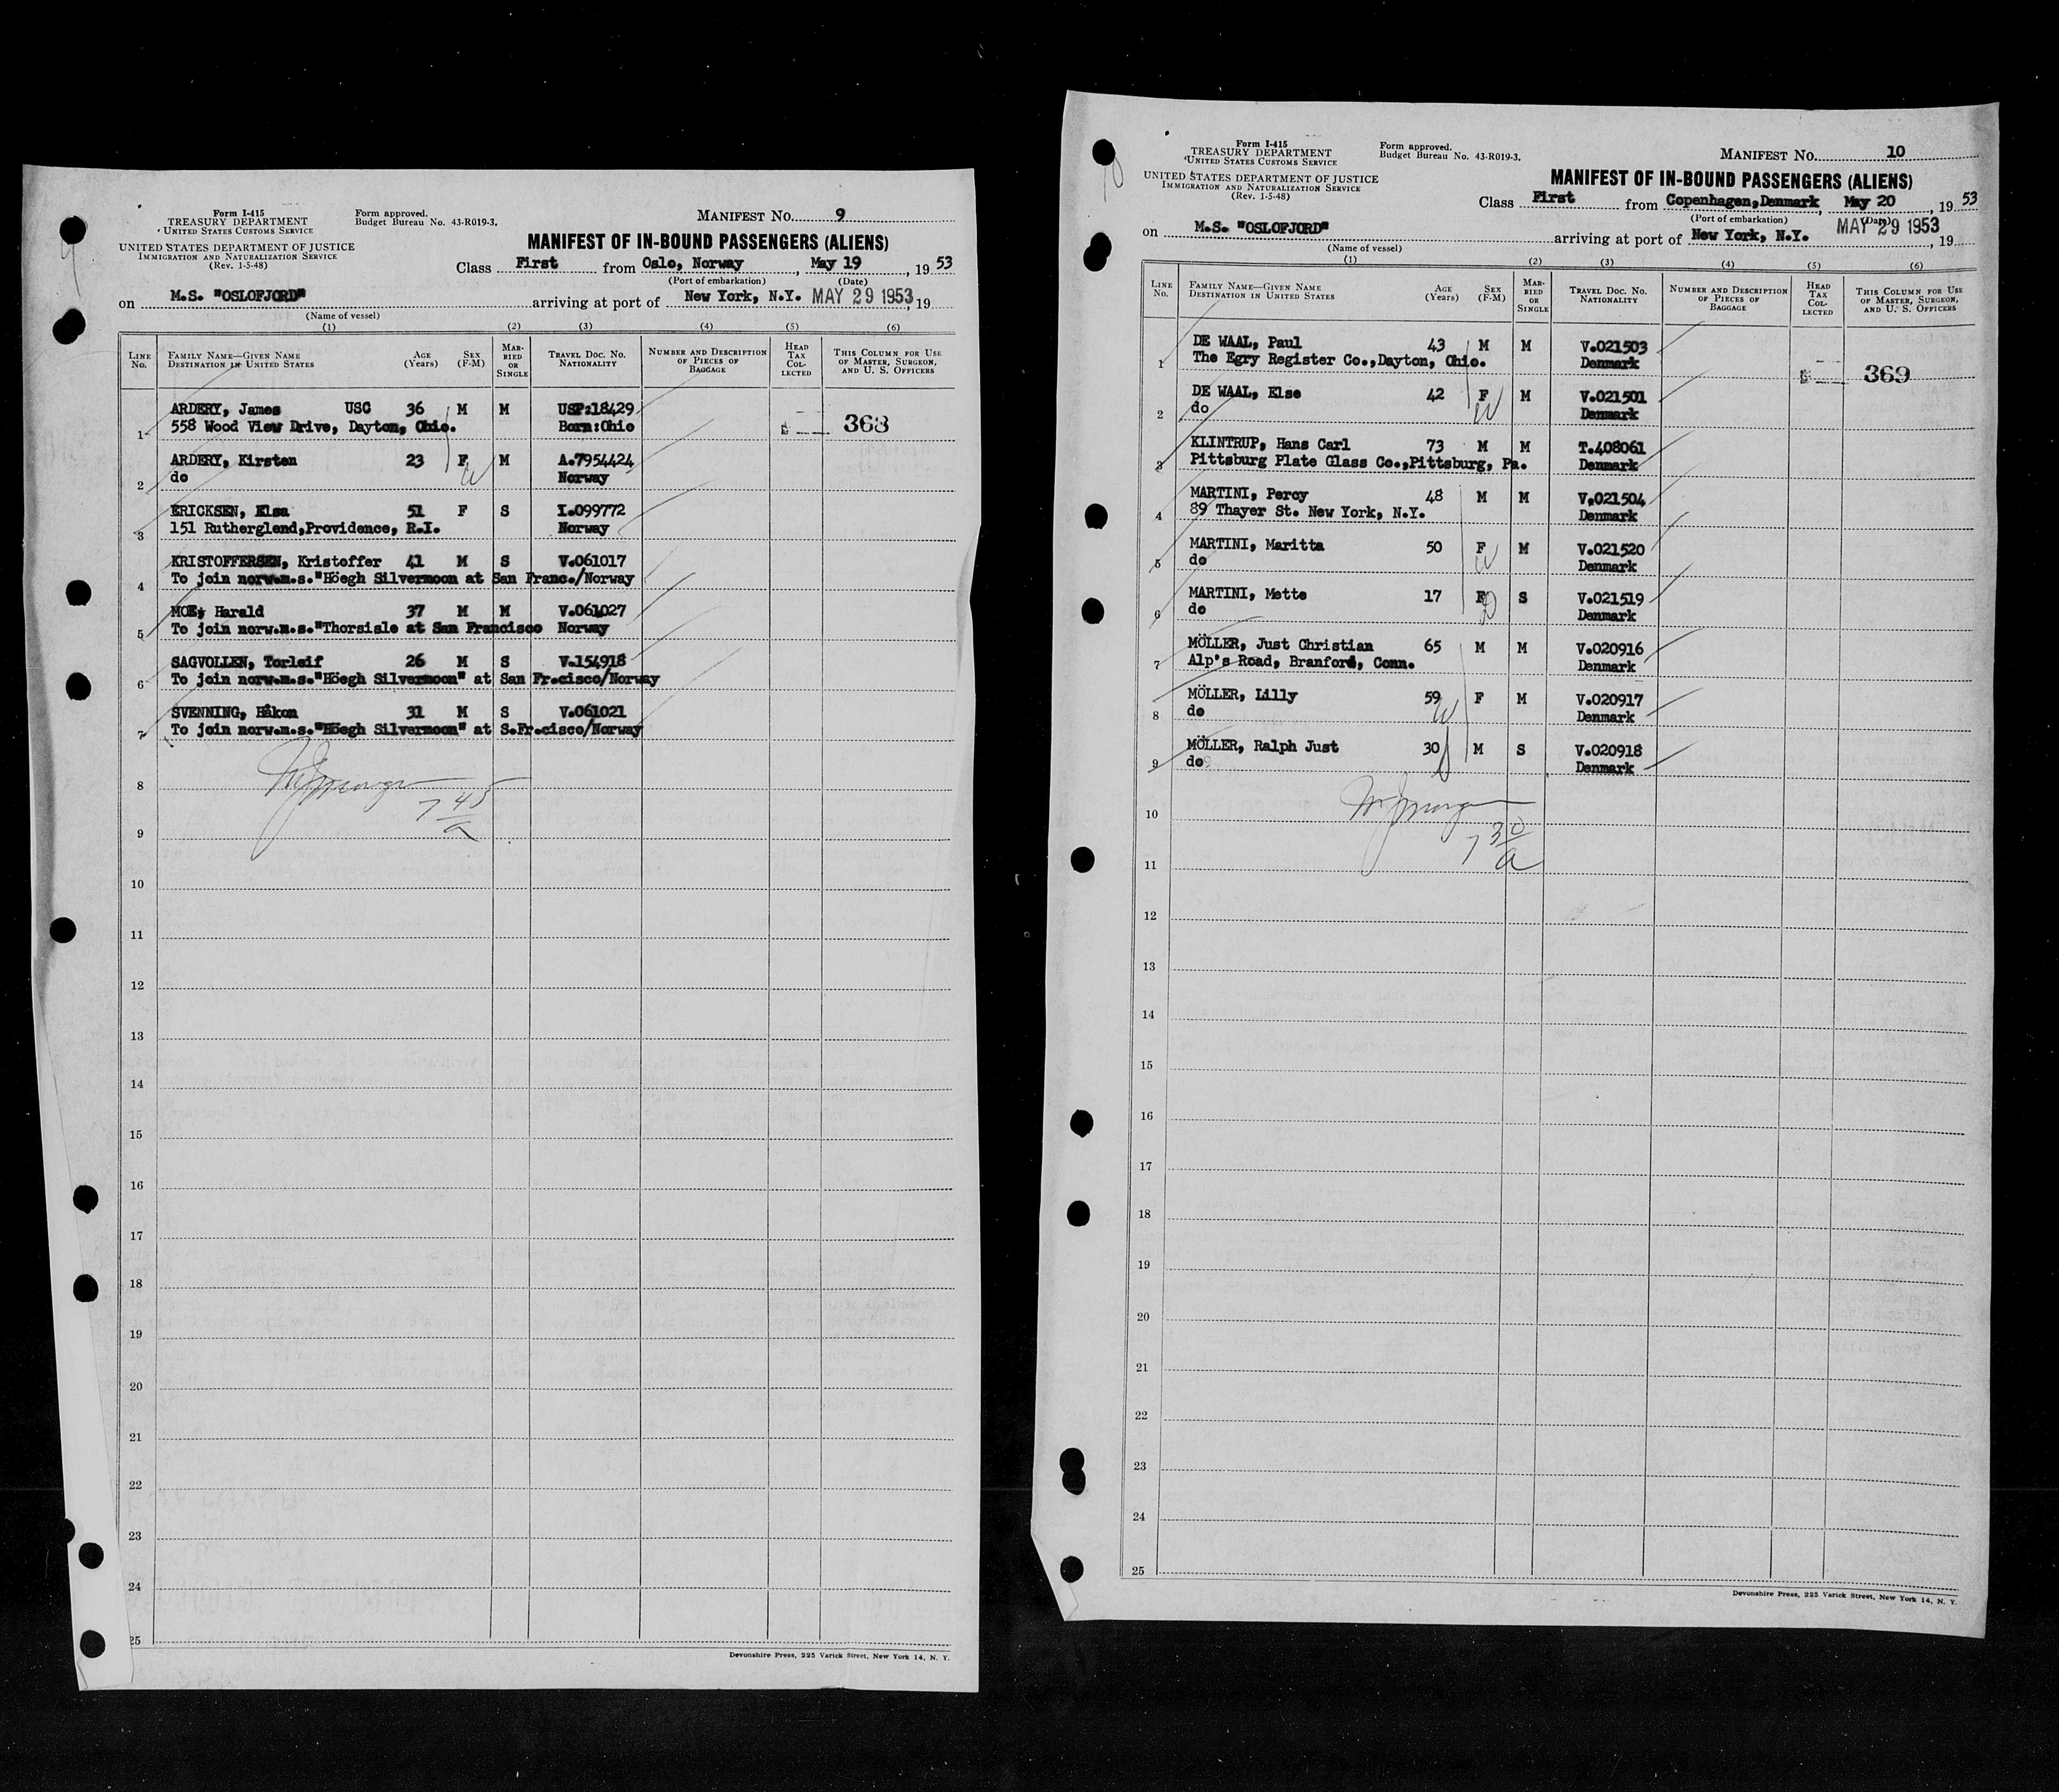 Form I-415
TREASURY DEPARTMENT
UNITED STATES CUSTOMS SERVICE
UNITED STATES DEPARTMENT OF JUSTICE
IMMIGRATION AND NATURALIZATION SERVICE
(Rev. 1-5-48)
Form approved.
Budget Bureau No. 43-R019-3.
MANIFEST NO. 9
MANIFEST OF IN-BOUND PASSENGERS (ALIENS)
Class First from Oslo, Norway, May 19, 19 53
(Port of embarkation) (Date)
on M.S. "OSLOFJORD" arriving at port of New York, N.Y. MAY 29 1953, 19
(Name of vessel)
(1) (2) (3) (4) (5) (6)
LINE No. FAMILY NAME—GIVEN NAME DESTINATION IN UNITED STATES AGE (Years) SEX (F-M) MARRIED OR SINGLE TRAVEL DOC. NO. NATIONALITY NUMBER AND DESCRIPTION OF PIECES OF BAGGAGE HEAD TAX COLLECTED THIS COLUMN FOR USE OF MASTER, SURGEON, AND U. S. OFFICERS
ARDERY, James USC 36 M M USP:18429 368
1 558 Wood View Drive, Dayton, Ohio. Born:Ohio
ARDERY, Kirsten 23 F M A.7954424
2 do Norway
ERICKSEN, Elsa 51 F S I.099772
3 151 Rutherglend,Providence, R.I. Norway
KRISTOFFERSEN, Kristoffer 41 M S V.061017
4 To join norw.m.s."Höegh Silvermoon at San Franc./Norway
MOE, Harald 37 M M V.061027
5 To join norw.m.s."Thorsisle at San Francisco Norway
SAGVOLLEN, Torleif 26 M S V.154918
6 To join norw.m.s."Höegh Silvermoon" at San Frcisco/Norway
SVENNING, Håkon 31 M S V.061021
7 To join norw.m.s."Höegh Silvermoon" at S.Fr.cisco/Norway
8
7 45/a
9
10
11
12
13
14
15
16
17
18
19
20
21
22
23
24
25
Devonshire Press, 225 Varick Street, New York 14, N. Y.
Form I-415
TREASURY DEPARTMENT
UNITED STATES CUSTOMS SERVICE
UNITED STATES DEPARTMENT OF JUSTICE
IMMIGRATION AND NATURALIZATION SERVICE
(Rev. 1-5-48)
Form approved.
Budget Bureau No. 43-R019-3.
MANIFEST NO. 10
MANIFEST OF IN-BOUND PASSENGERS (ALIENS)
Class First from Copenhagen,Denmark, May 20, 19 53
(Port of embarkation) (Date)
on M.S. "OSLOFJORD" arriving at port of New York, N.Y. MAY 29 1953, 19
(Name of vessel)
(1) (2) (3) (4) (5) (6)
LINE No. FAMILY NAME—GIVEN NAME DESTINATION IN UNITED STATES AGE (Years) SEX (F-M) MARRIED OR SINGLE TRAVEL DOC. NO. NATIONALITY NUMBER AND DESCRIPTION OF PIECES OF BAGGAGE HEAD TAX COLLECTED THIS COLUMN FOR USE OF MASTER, SURGEON, AND U. S. OFFICERS
DE WAAL, Paul 43 M M V.021503
1 The Egry Register Co.,Dayton, Ohio. Denmark 369
DE WAAL, Else 42 F M V.021501
2 do Denmark
KLINTRUP, Hans Carl 73 M M T.408061
3 Pittsburg Plate Glass Co.,Pittsburg, Pa. Denmark
MARTINI, Percy 48 M M V.021504
4 89 Thayer St. New York, N.Y. Denmark
MARTINI, Maritta 50 F M V.021520
5 do Denmark
MARTINI, Mette 17 F S V.021519
6 do Denmark
MÖLLER, Just Christian 65 M M V.020916
7 Alp's Road, Branford, Conn. Denmark
MÖLLER, Lilly 59 F M V.020917
8 do Denmark
MÖLLER, Ralph Just 30 M S V.020918
9 do Denmark
10
7 30/a
11
12
13
14
15
16
17
18
19
20
21
22
23
24
25
Devonshire Press, 225 Varick Street, New York 14, N. Y.